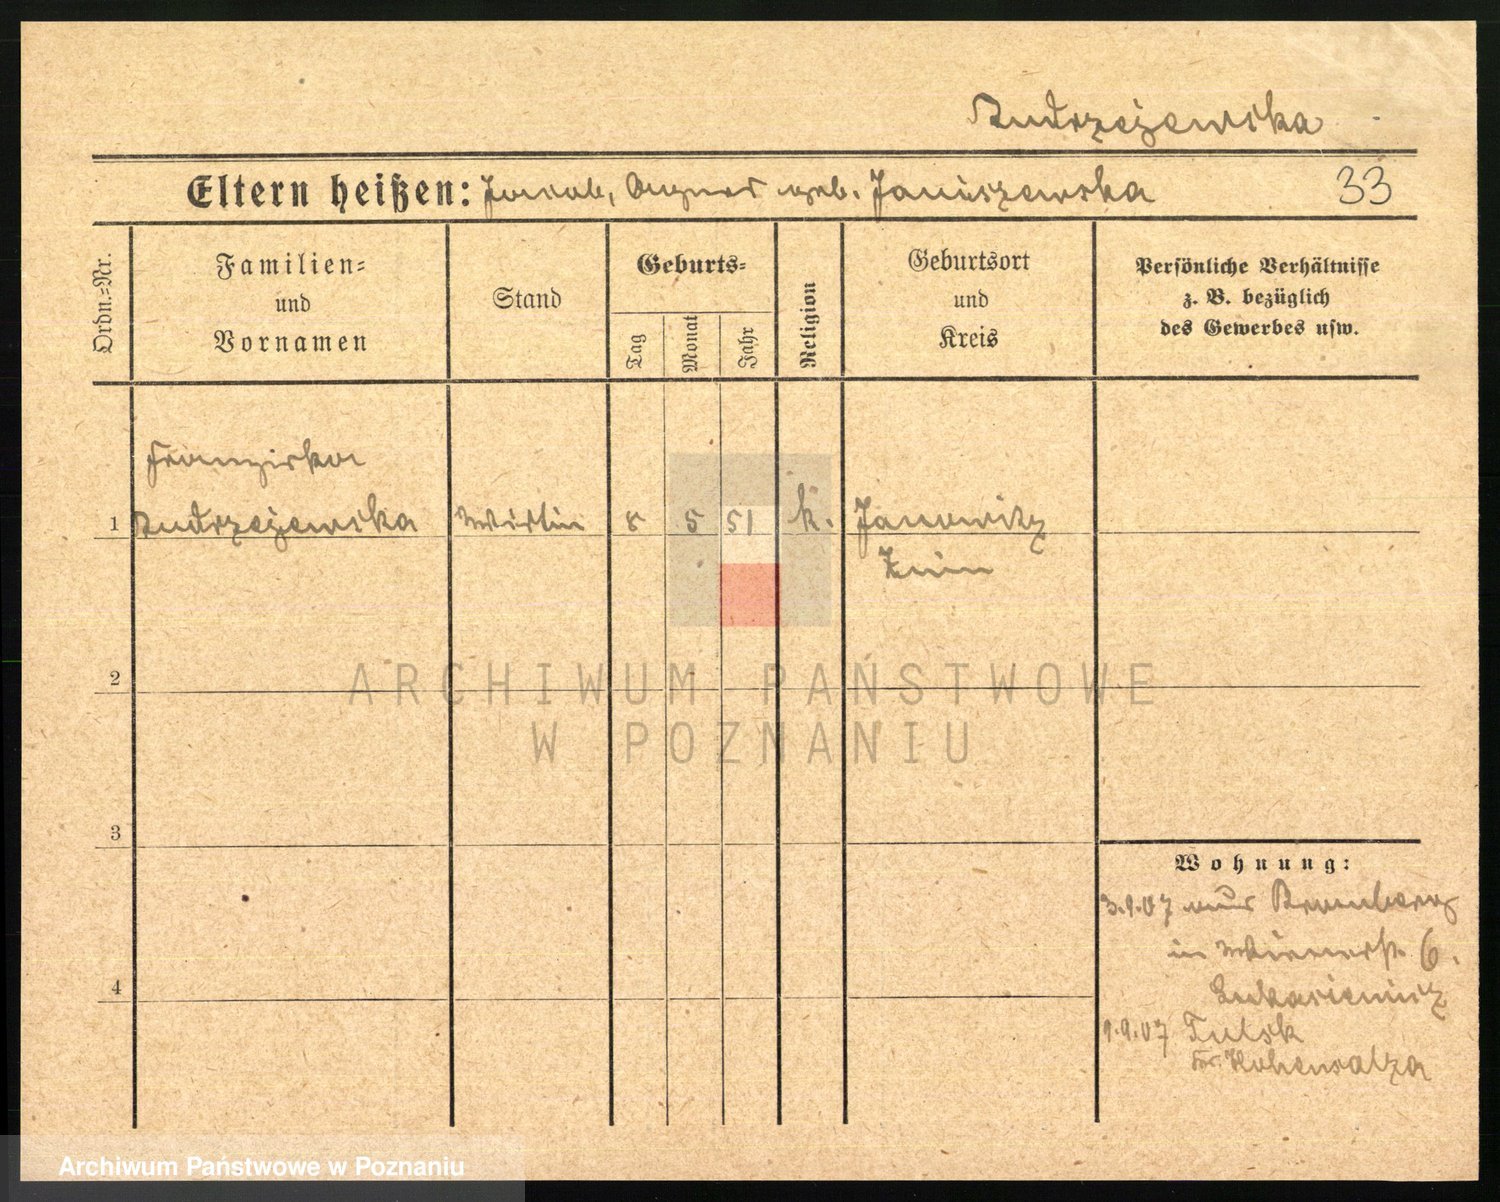 Andrzejewska
Eltern heißen: Jacob, Agnes geb. Januszewska 33
Ordn.=Nr.
Familien=
und
Vornamen
Stand
Geburts=
Tag
Monat
Jahr
Religion
Geburtsort
und
Kreis
Persönliche Verhältnisse
z. B. bezüglich
des Gewerbes usw.
Franziska
1 Andrzejewska Wirtin 8 5 51 k. Janowitz
Znin
2
ARCHIWUM PAŃSTWOWE
W POZNANIU
3
Wohnung:
3.9.07 aus Bromberg
in 6.
4
9.9.07
Kr. Hohensalza
Archiwum Państwowe w Poznaniu